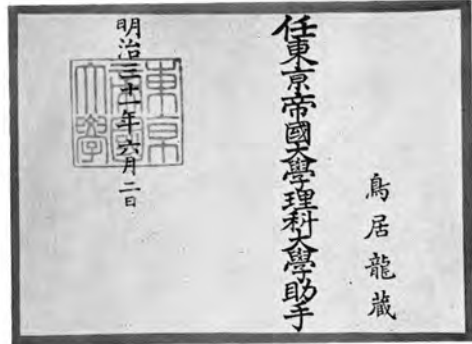 鳥居龍藏
任東京帝國大學理科大學助手
明治三十一年六月二日
東京帝國大學